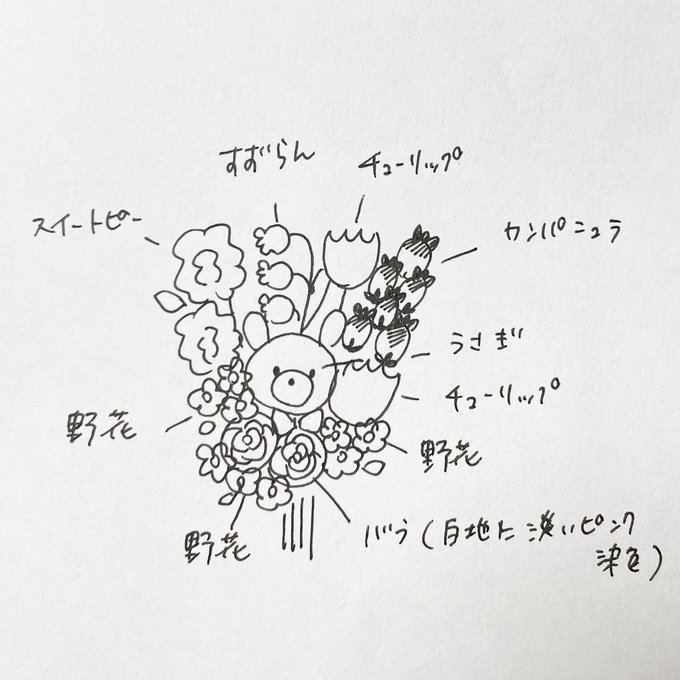 すずらん
チューリップ
スイートピー
カンパニュラ
うさぎ
チューリップ
野花
野花
野花
バラ(白地に淡いピンク
染色)